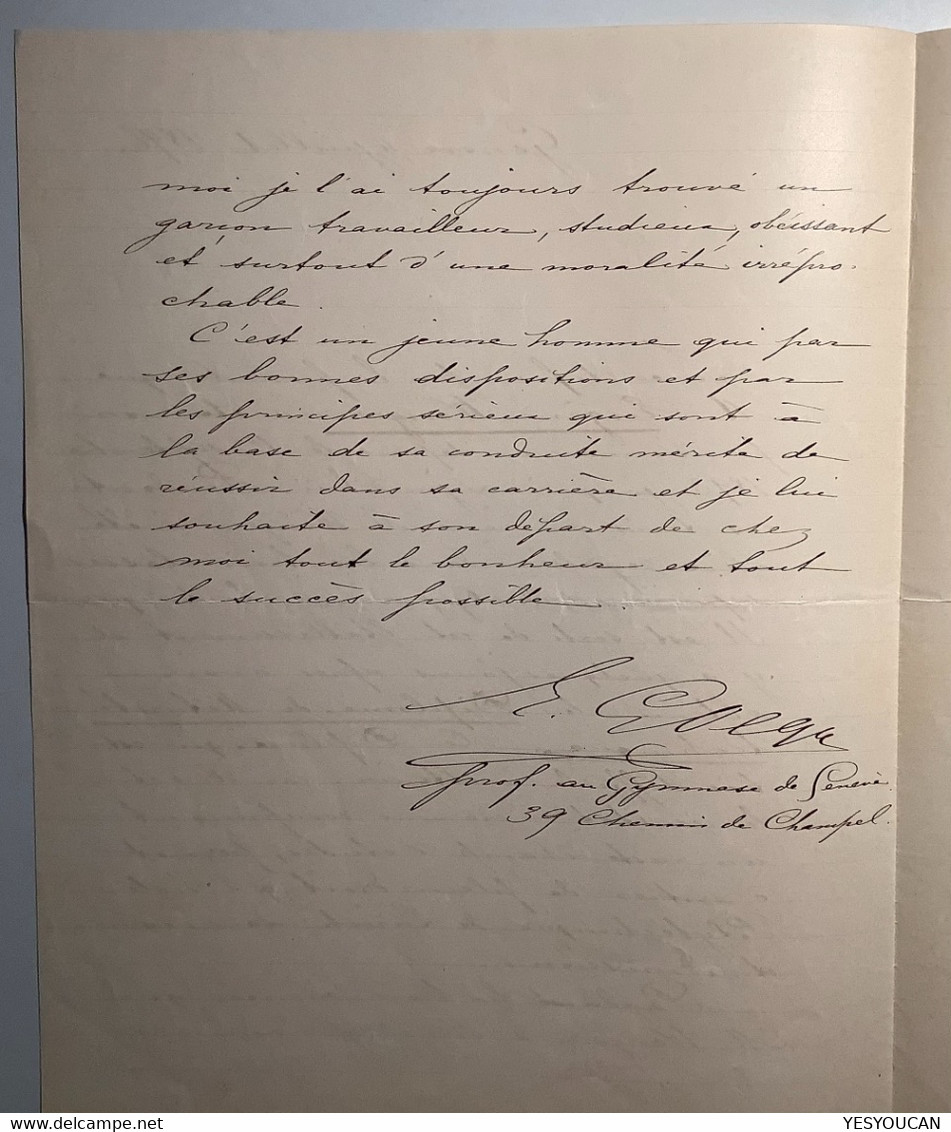 moi je l'ai toujours trouvé un
garçon travailleur, studieux, obéissant
et surtout d'une moralité irrépro-
chable.
C'est un jeune homme qui par
ses bonnes dispositions et par
les principes sérieux qui sont à
la base de sa conduite mérite de
réussir dans sa carrière et je lui
souhaite à son départ de chez
moi tout le bonheur et tout
le succès possible.
E.
prof. au Gymnase de Genève
39 Chemin de Champel.
delcampe.net
YESYOUCAN